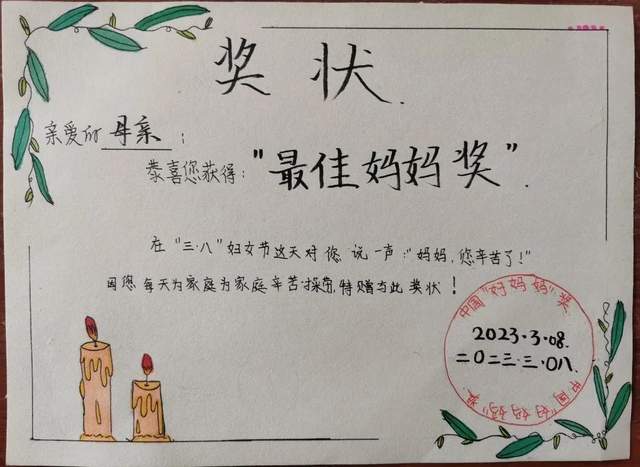 奖状.
亲爱的 母亲：
恭喜您获得："最佳妈妈奖".
在"三·八"妇女节这天对您说一声："妈妈，您辛苦了！"
因您每天为家庭为家庭辛苦操劳，特赠与此奖状！
中国"好妈妈"奖
2023.3.08.
二〇二三.三.〇八.
中国"好妈妈"奖